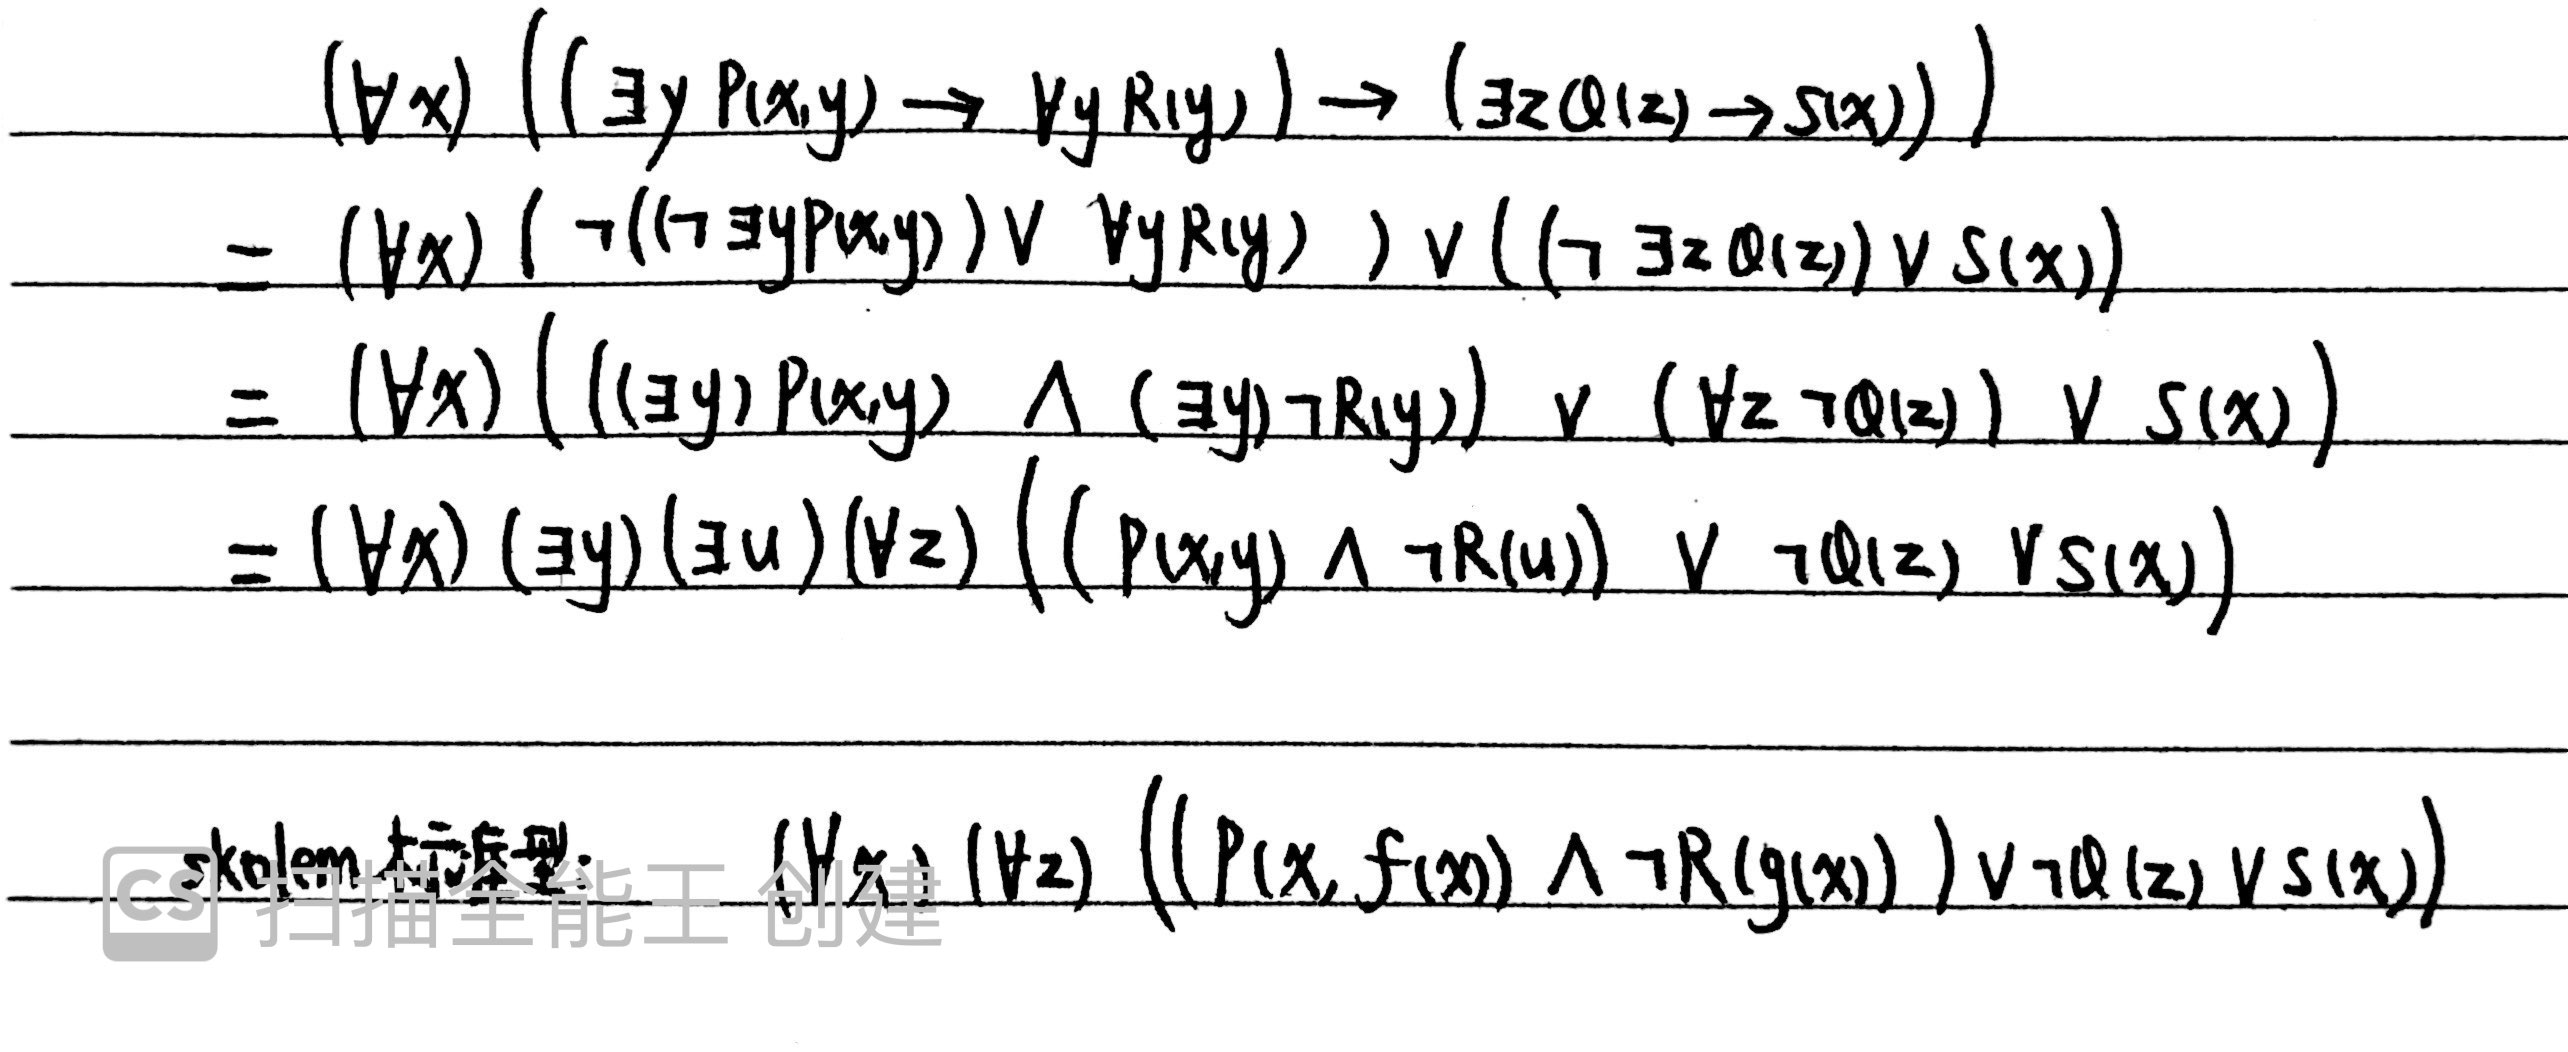 (∀x) ((∃y P(x,y) → ∀y R(y)) → (∃z Q(z) → S(x)))
= (∀x) (¬((¬∃yP(x,y)) ∨ ∀yR(y))) ∨ ((¬∃z Q(z)) ∨ S(x))
= (∀x) (((∃y) P(x,y) ∧ (∃y)¬R(y)) ∨ (∀z ¬Q(z)) ∨ S(x))
= (∀x) (∃y) (∃u) (∀z) ((P(x,y) ∧ ¬R(u)) ∨ ¬Q(z) ∨ S(x))
skolem 标准型: (∀x) (∀z) ((P(x, f(x)) ∧ ¬R(g(x))) ∨ ¬Q(z) ∨ S(x))
CS 扫描全能王 创建